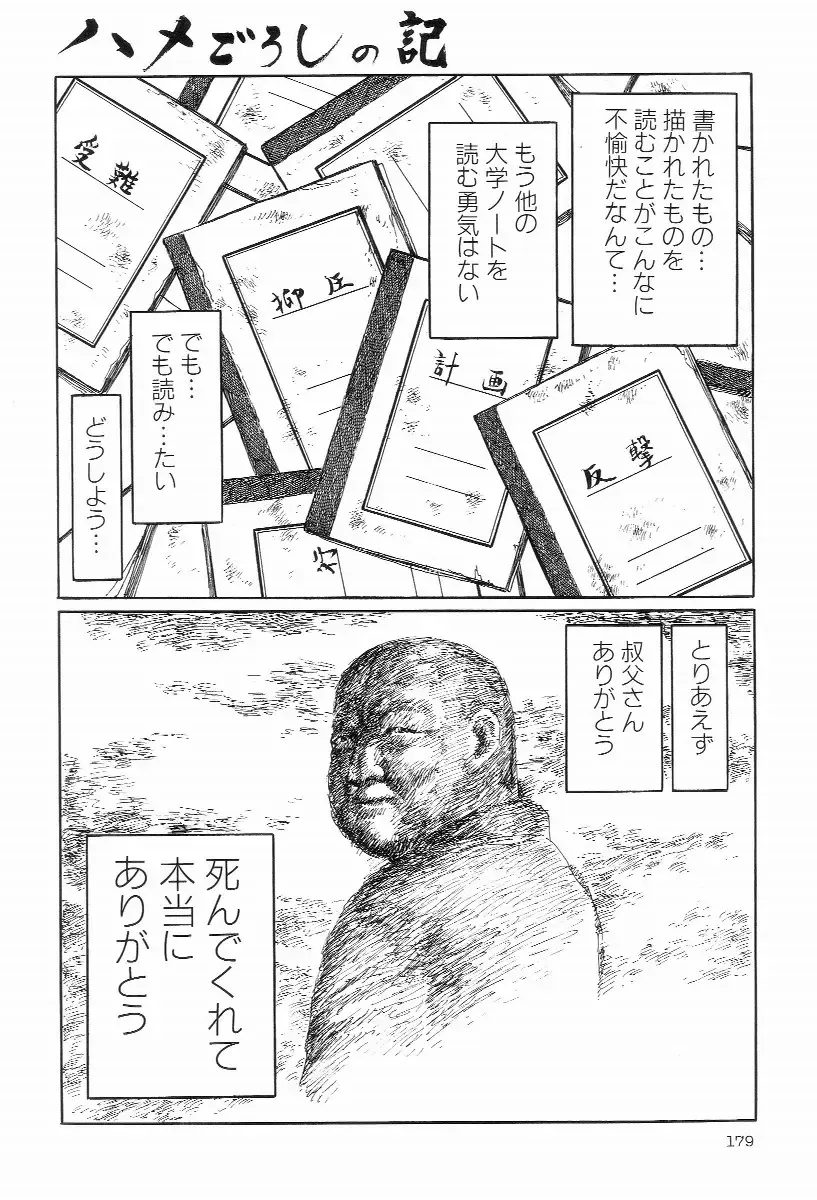 ハメごろしの記
書かれたもの…
描かれたものを
読むことがこんなに
不愉快だなんて…
もう他の
大学ノートを
読む勇気はない
でも…
でも読み…たい
どうしよう…
受難
抑圧
計画
反撃
とりあえず
叔父さん
ありがとう
死んでくれて
本当に
ありがとう
179